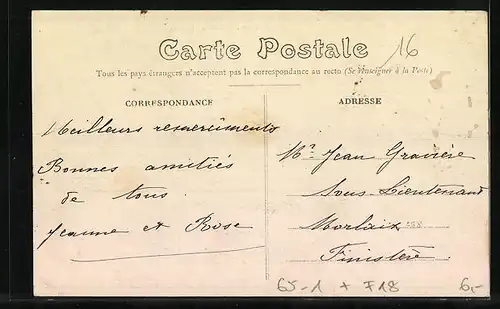 16
Carte Postale
Tous les pays étrangers n'acceptent pas la correspondance au recto (Se renseigner à la Poste)
CORRESPONDANCE
ADRESSE
Meilleurs remerciments
Bonnes amitiés
de tous.
Jeanne et Rose
Mr. Jean Gravière
Sous-Lieutenant
Morlaix
Finistère
65-1 + F18
6,-